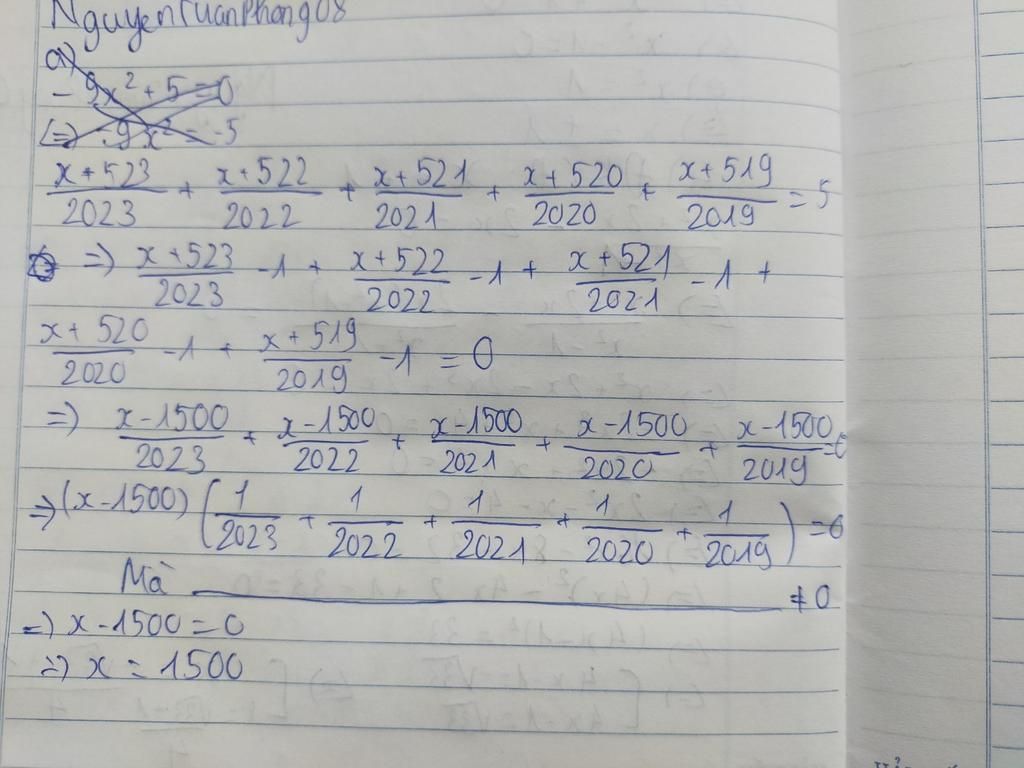 NguyenTuanPhong08
a)
- 9x² + 5 = 0
(=) -9x² = -5
x+523/2023 + x+522/2022 + x+521/2021 + x+520/2020 + x+519/2019 = 5
=) x+523/2023 -1 + x+522/2022 -1 + x+521/2021 -1 +
x+520/2020 -1 + x+519/2019 -1 = 0
=) x-1500/2023 + x-1500/2022 + x-1500/2021 + x-1500/2020 + x-1500/2019 = 0
=) (x-1500) (1/2023 + 1/2022 + 1/2021 + 1/2020 + 1/2019) = 0
Mà ≠ 0
=) x-1500 = 0
=) x = 1500